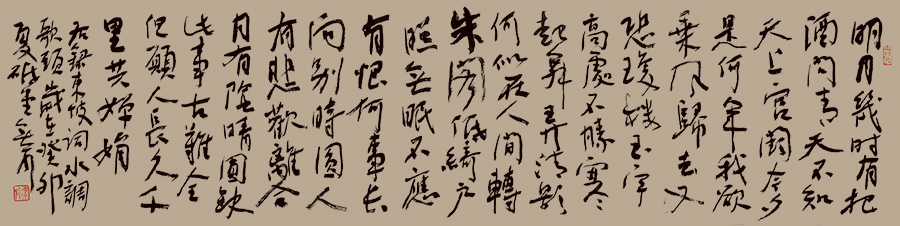 明月幾時有把
酒问青天不知
天上宫阙今夕
是何年我欲
乘风歸去又
恐瓊樓玉宇
高處不勝寒
起舞弄清影
何似在人間轉
朱阁低綺户
照無眠不應
有恨何事長
向别時圆人
有悲歡離合
月有陰晴圆缺
此事古難全
但願人長久千
里共嬋娟
右録東坡詞水調
歌頭歲在癸卯
夏